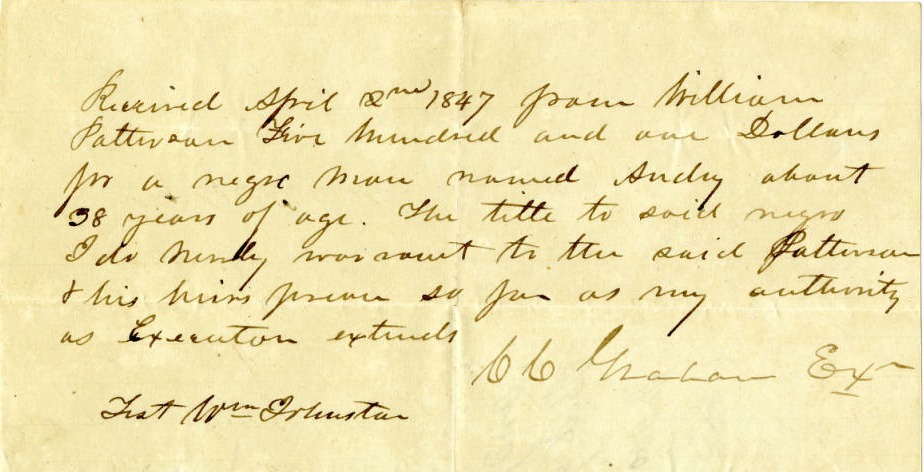 Received April 2nd 1847 from William
Patterson Five hundred and one Dollars
for a negro man named Andy about
38 years of age. The title to said negro
I do hereby warrant to the said Patterson
& his heirs so far as my authority
as Executor extends
C C Graham Exr
Test Wm Johnston